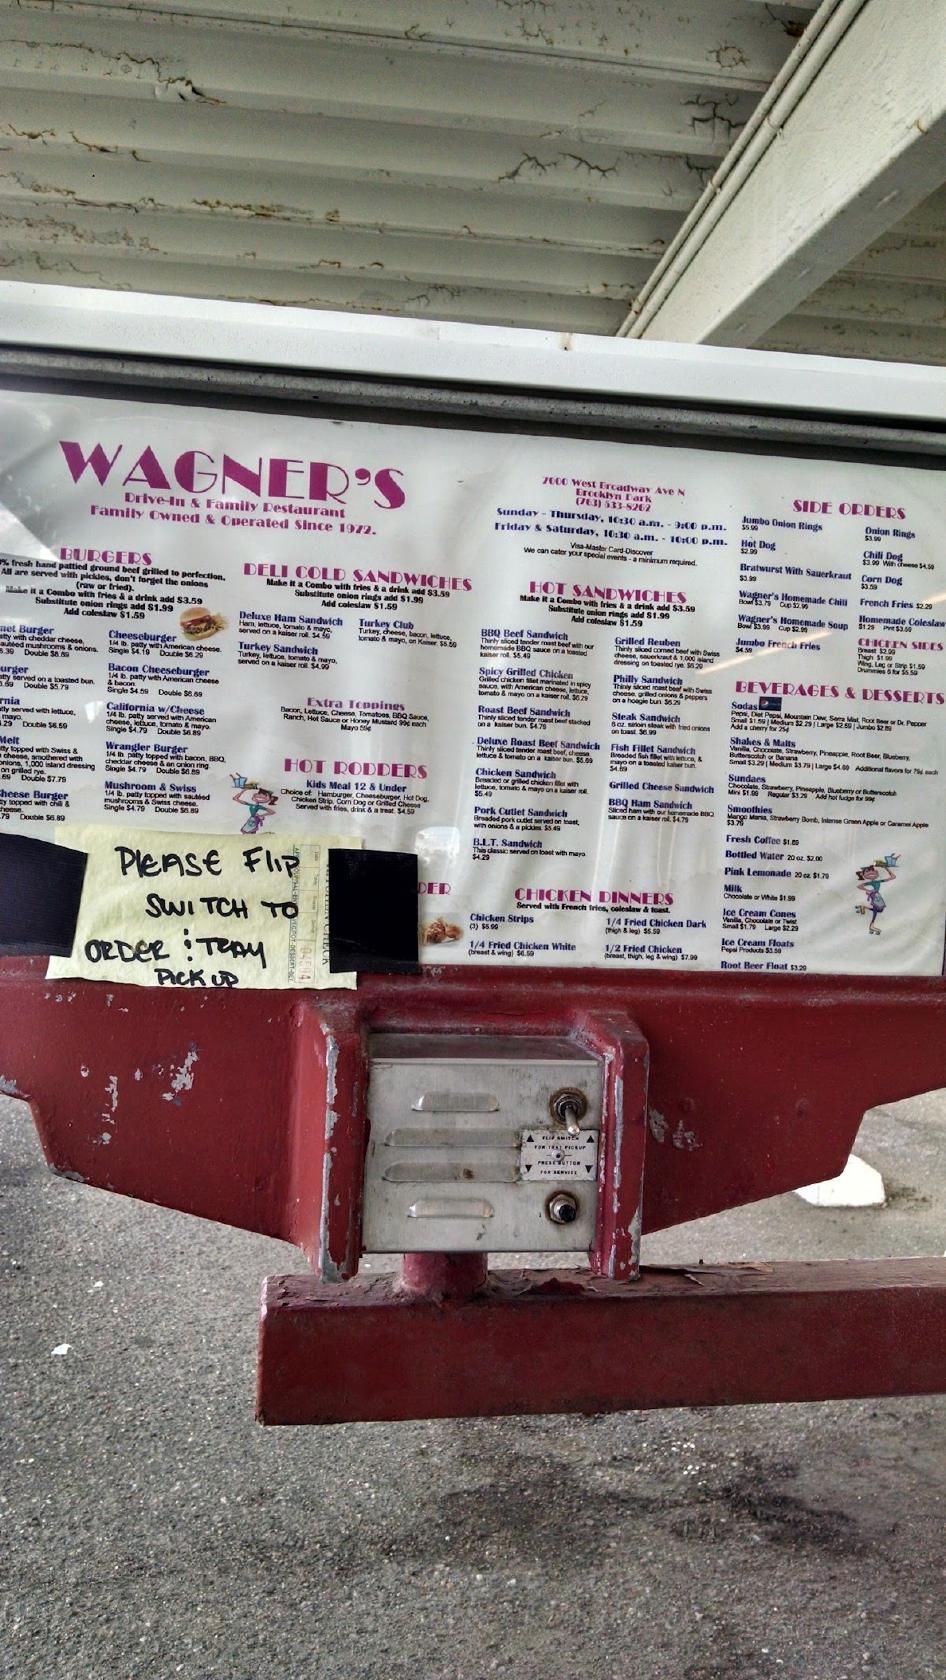 WAGNER'S
Drive-In & Family Restaurant
Family Owned & Operated Since 1972.
BURGERS
% fresh hand pattied ground beef grilled to perfection.
All are served with pickles, don't forget the onions
(raw or fried).
Make it a Combo with fries & a drink add $3.59
Substitute onion rings add $1.99
Add coleslaw $1.59
met Burger
atty with cheddar cheese,
sautéed mushrooms & onions.
5.39 Double $8.89
urger
atty served on a toasted bun.
.69 Double $5.79
rnia
mayo.
.29 Double $6.59
Melt
atty topped with Swiss &
cheese, smothered with
onions, 1,000 island dressing
on grilled rye.
.69 Double $7.79
Cheese Burger
atty topped with chili &
cheese.
.79 Double $6.89
Cheeseburger
1/4 lb. patty with American cheese.
Single $4.19 Double $6.29
Bacon Cheeseburger
1/4 lb. patty with American cheese
& bacon.
Single $4.59 Double $6.69
California w/Cheese
1/4 lb. patty served with American
cheese, lettuce, tomato & mayo.
Single $4.79 Double $6.89
Wrangler Burger
1/4 lb. patty topped with bacon, BBQ,
cheddar cheese & an onion ring
Single $4.79 Double $6.89
Mushroom & Swiss
1/4 lb. patty topped with sautéed
mushrooms & Swiss cheese.
Single $4.79 Double $6.89
DELI COLD SANDWICHES
Make it a Combo with fries & a drink add $3.59
Substitute onion rings add $1.99
Add coleslaw $1.59
Deluxe Ham Sandwich
Ham, lettuce, tomato & mayo,
served on a kaiser roll. $4.59
Turkey Sandwich
Turkey, lettuce, tomato & mayo,
served on a kaiser roll. $4.99
Turkey Club
Turkey, cheese, bacon, lettuce,
tomato & mayo, on Kaiser. $5.59
Extra Toppings
Bacon, Lettuce, Cheese, Tomatoes, BBQ Sauce,
Ranch, Hot Sauce or Honey Mustard 99¢ each
Mayo 59¢
HOT RODDERS
Kids Meal 12 & Under
Choice of: Hamburger, Cheeseburger, Hot Dog,
Chicken Strip, Corn Dog or Grilled Cheese
Served with fries, drink & a treat. $4.59
7000 West Broadway Ave N
Brooklyn Park
(763) 533-8262
Sunday - Thursday, 10:30 a.m. - 9:00 p.m.
Friday & Saturday, 10:30 a.m. - 10:00 p.m.
Visa-Master Card-Discover
We can cater your special events - a minimum required.
HOT SANDWICHES
Make it a Combo with fries & a drink add $3.59
Substitute onion rings add $1.99
Add coleslaw $1.59
BBQ Beef Sandwich
Thinly sliced tender roast beef with our
homemade BBQ sauce on a toasted
kaiser roll. $5.49
Spicy Grilled Chicken
Grilled chicken fillet marinated in spicy
sauce, with American cheese, lettuce,
tomato & mayo on a kaiser roll. $6.29
Roast Beef Sandwich
Thinly sliced tender roast beef stacked
on a kaiser roll. $4.79
Deluxe Roast Beef Sandwich
Thinly sliced tender roast beef, cheese
lettuce & tomato on a kaiser bun. $5.69
Chicken Sandwich
Breaded or grilled chicken filet with
lettuce, tomato & mayo on a kaiser roll.
$5.49
Pork Cutlet Sandwich
Breaded pork cutlet served on toast,
with onions & a pickles. $5.49
B.L.T. Sandwich
This classic served on toast with mayo.
$4.29
Grilled Reuben
Thinly sliced corned beef with Swiss
cheese, sauerkraut & 1,000 island
dressing on toasted rye. $6.29
Philly Sandwich
Thinly sliced roast beef with Swiss
cheese, grilled onions & peppers
on a hoagie bun. $6.29
Steak Sandwich
6 oz. sirloin steak with fried onions
on toast. $6.99
Fish Fillet Sandwich
Breaded fish fillet with lettuce, &
$4.69
Grilled Cheese Sandwich
BBQ Ham Sandwich
Sliced ham with our homemade BBQ
sauce on a kaiser roll. $4.79
DER
CHICKEN DINNERS
Served with French fries, coleslaw & toast.
Chicken Strips
(3) $6.99
1/4 Fried Chicken White
(breast & wing) $6.59
1/4 Fried Chicken Dark
(thigh & leg) $5.59
1/2 Fried Chicken
(breast, thigh, leg & wing) $7.99
SIDE ORDERS
Jumbo Onion Rings
$5.99
Hot Dog
$2.99
Bratwurst With Sauerkraut
$3.99
Wagner's Homemade Chili
Bowl $3.79 Cup $2.99
Wagner's Homemade Soup
Bowl $3.99 Cup $2.99
Jumbo French Fries
$4.59
Onion Rings
$3.99
Chili Dog
$3.99 With cheese $4.59
Corn Dog
$3.59
French Fries $2.29
Homemade Coleslaw
$1.29 Pint $3.59
CHICKEN SIDES
Breast $2.99
Thigh $1.99
Wing, Leg or Strip $1.59
Drummies 6 for $5.59
BEVERAGES & DESSERTS
Sodas
Pepsi, Diet Pepsi, Mountain Dew, Sierra Mist, Root Beer or Dr. Pepper
Small $1.59 | Medium $2.29 | Large $2.59 | Jumbo $2.89
Add a cherry for 25¢
Shakes & Malts
Vanilla, Chocolate, Strawberry, Pineapple, Root Beer, Blueberry,
Butterscotch or Banana
Small $3.29 | Medium $3.79 | Large $4.69 Additional flavors for 79¢ each
Sundaes
Chocolate, Strawberry, Pineapple, Blueberry or Butterscotch
Mini $1.99 Regular $3.29 Add hot fudge for 99¢
Smoothies
Mango Mania, Strawberry Bomb, Intense Green Apple or Caramel Apple
$3.79
Fresh Coffee $1.69
Bottled Water 20 oz. $2.00
Pink Lemonade 20 oz $1.79
Milk
Chocolate or White $1.59
Ice Cream Cones
Vanilla, Chocolate or Twist
Small $1.79 Large $2.29
Ice Cream Floats
Pepsi Products $3.59
Root Beer Float $3.29
PLEASE FLIP
SWITCH TO
ORDER & TRAY
PICK UP
FLIP SWITCH
FOR TRAY PICKUP
PRESS BUTTON
FOR SERVICE